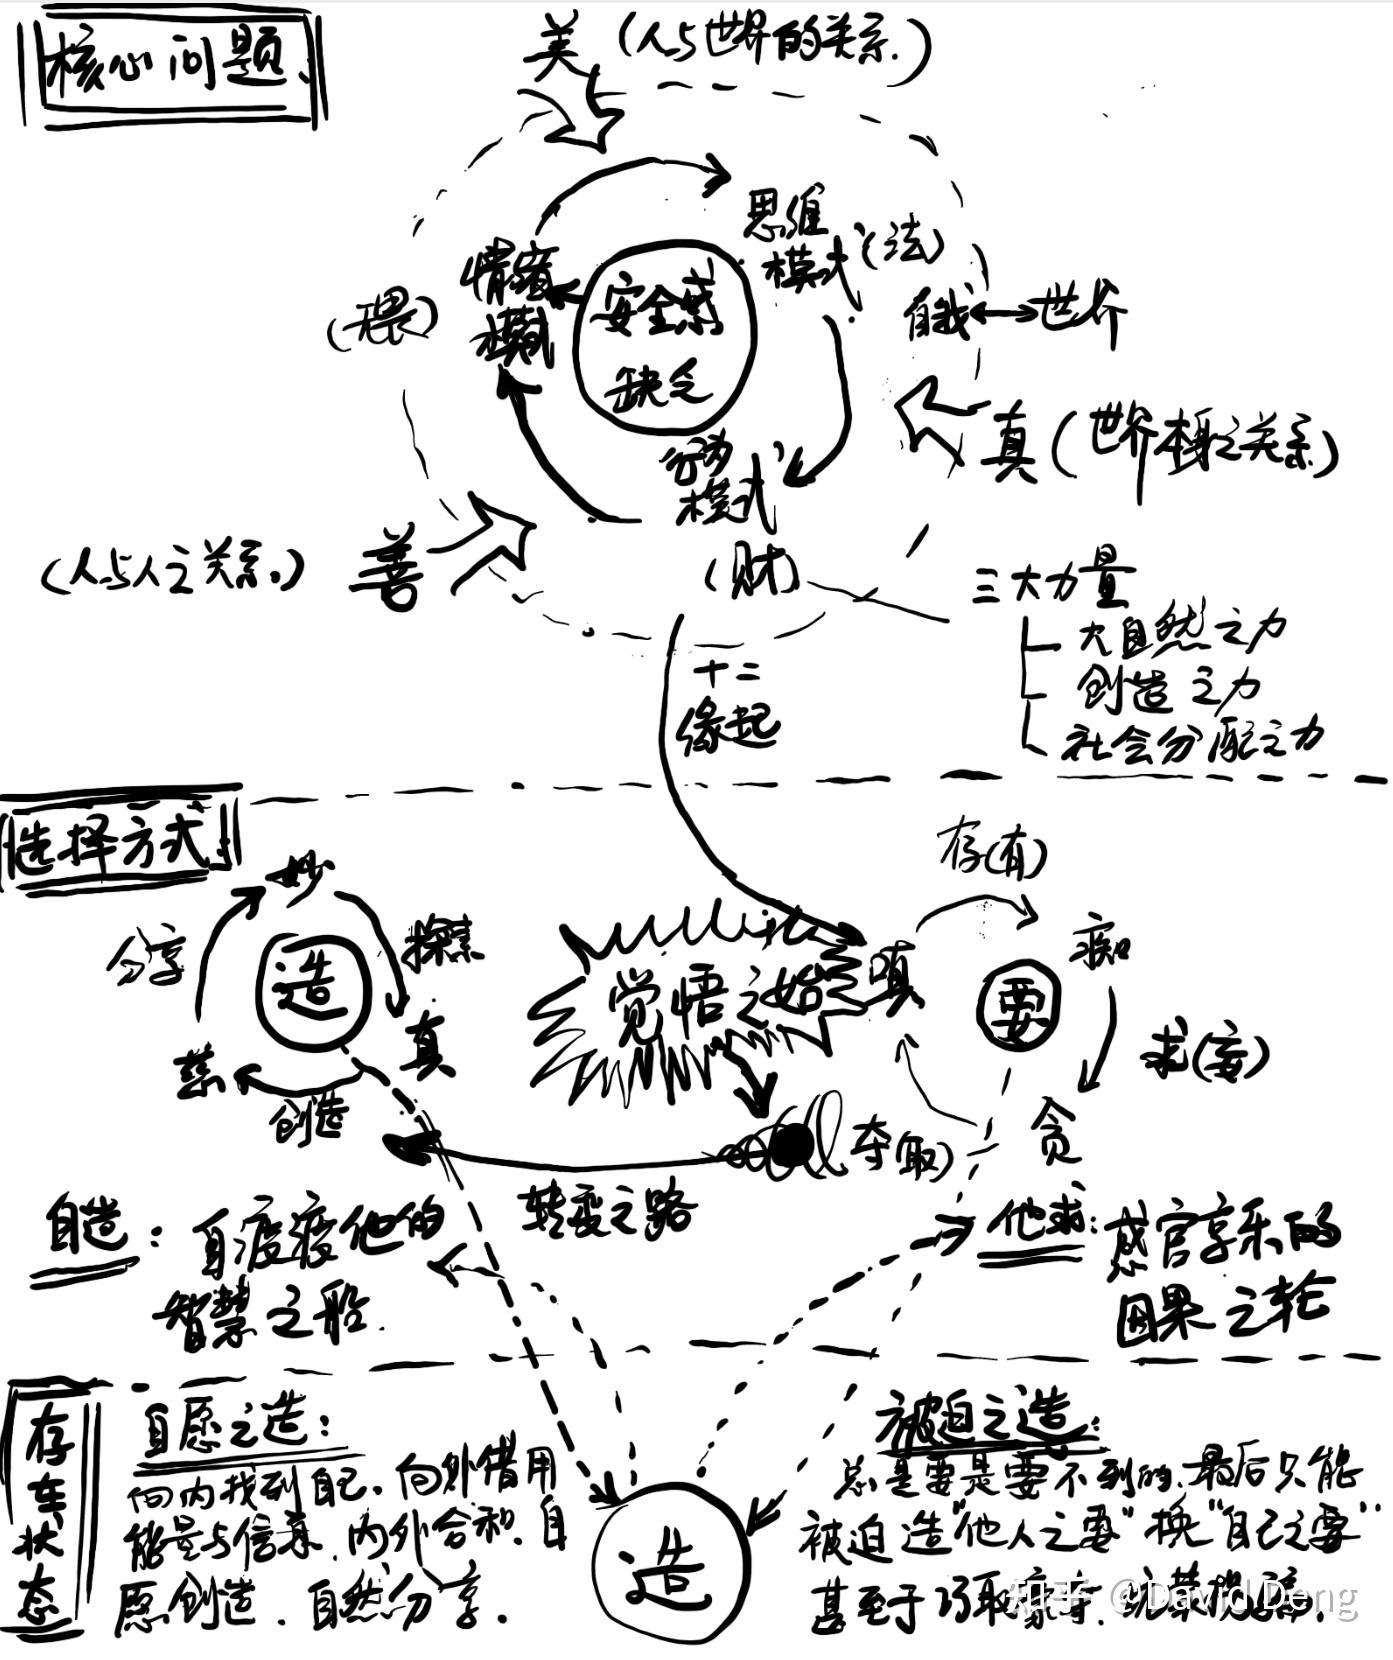 核心问题
美 (人与世界的关系.)
思维
模式 (法)
情绪
模式
安全感
缺乏
自我 世界
真 (世界本身之关系)
行为
模式
(财)
(人与人之关系.) 善
三大力量
大自然之力
创造之力
社会分配之力
十二
缘起
选择方式
妙
分享
探索
造
慈
真
创造
觉悟之始
存(有)
嗔
痴
要
求(害)
贪
夺(取)
转变之路
自造: 自渡渡他的
智慧之船.
他求: 感官享乐的
因果之轮
存在状态
自愿之造:
向内找到自己. 向外借用
能量与信息. 内外合和. 自
愿创造. 自然分享.
造
被迫之造:
总是要是要不到的. 最后只能
被迫造“他人之要”换“自己之要”
甚至于巧取豪夺.
知乎 @David Deng